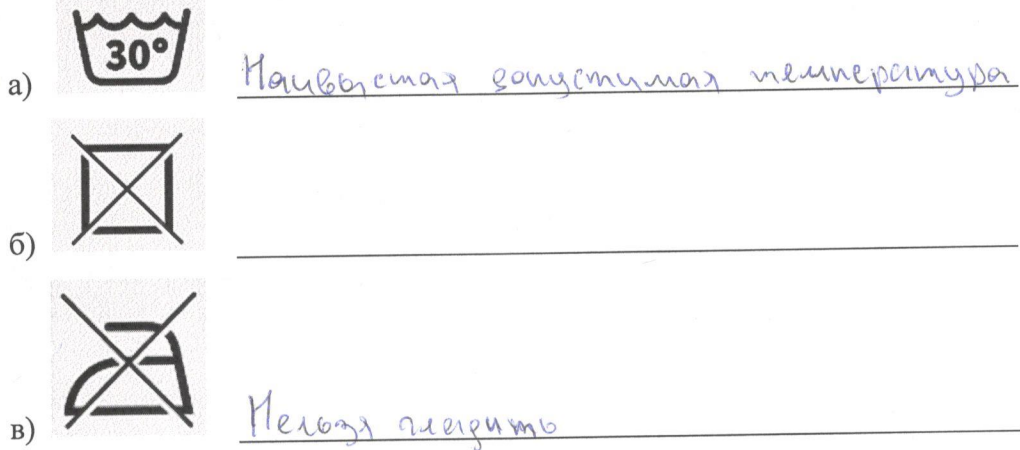 30°
а) Наивысшая допустимая температура
б)
в) Нельзя гладить